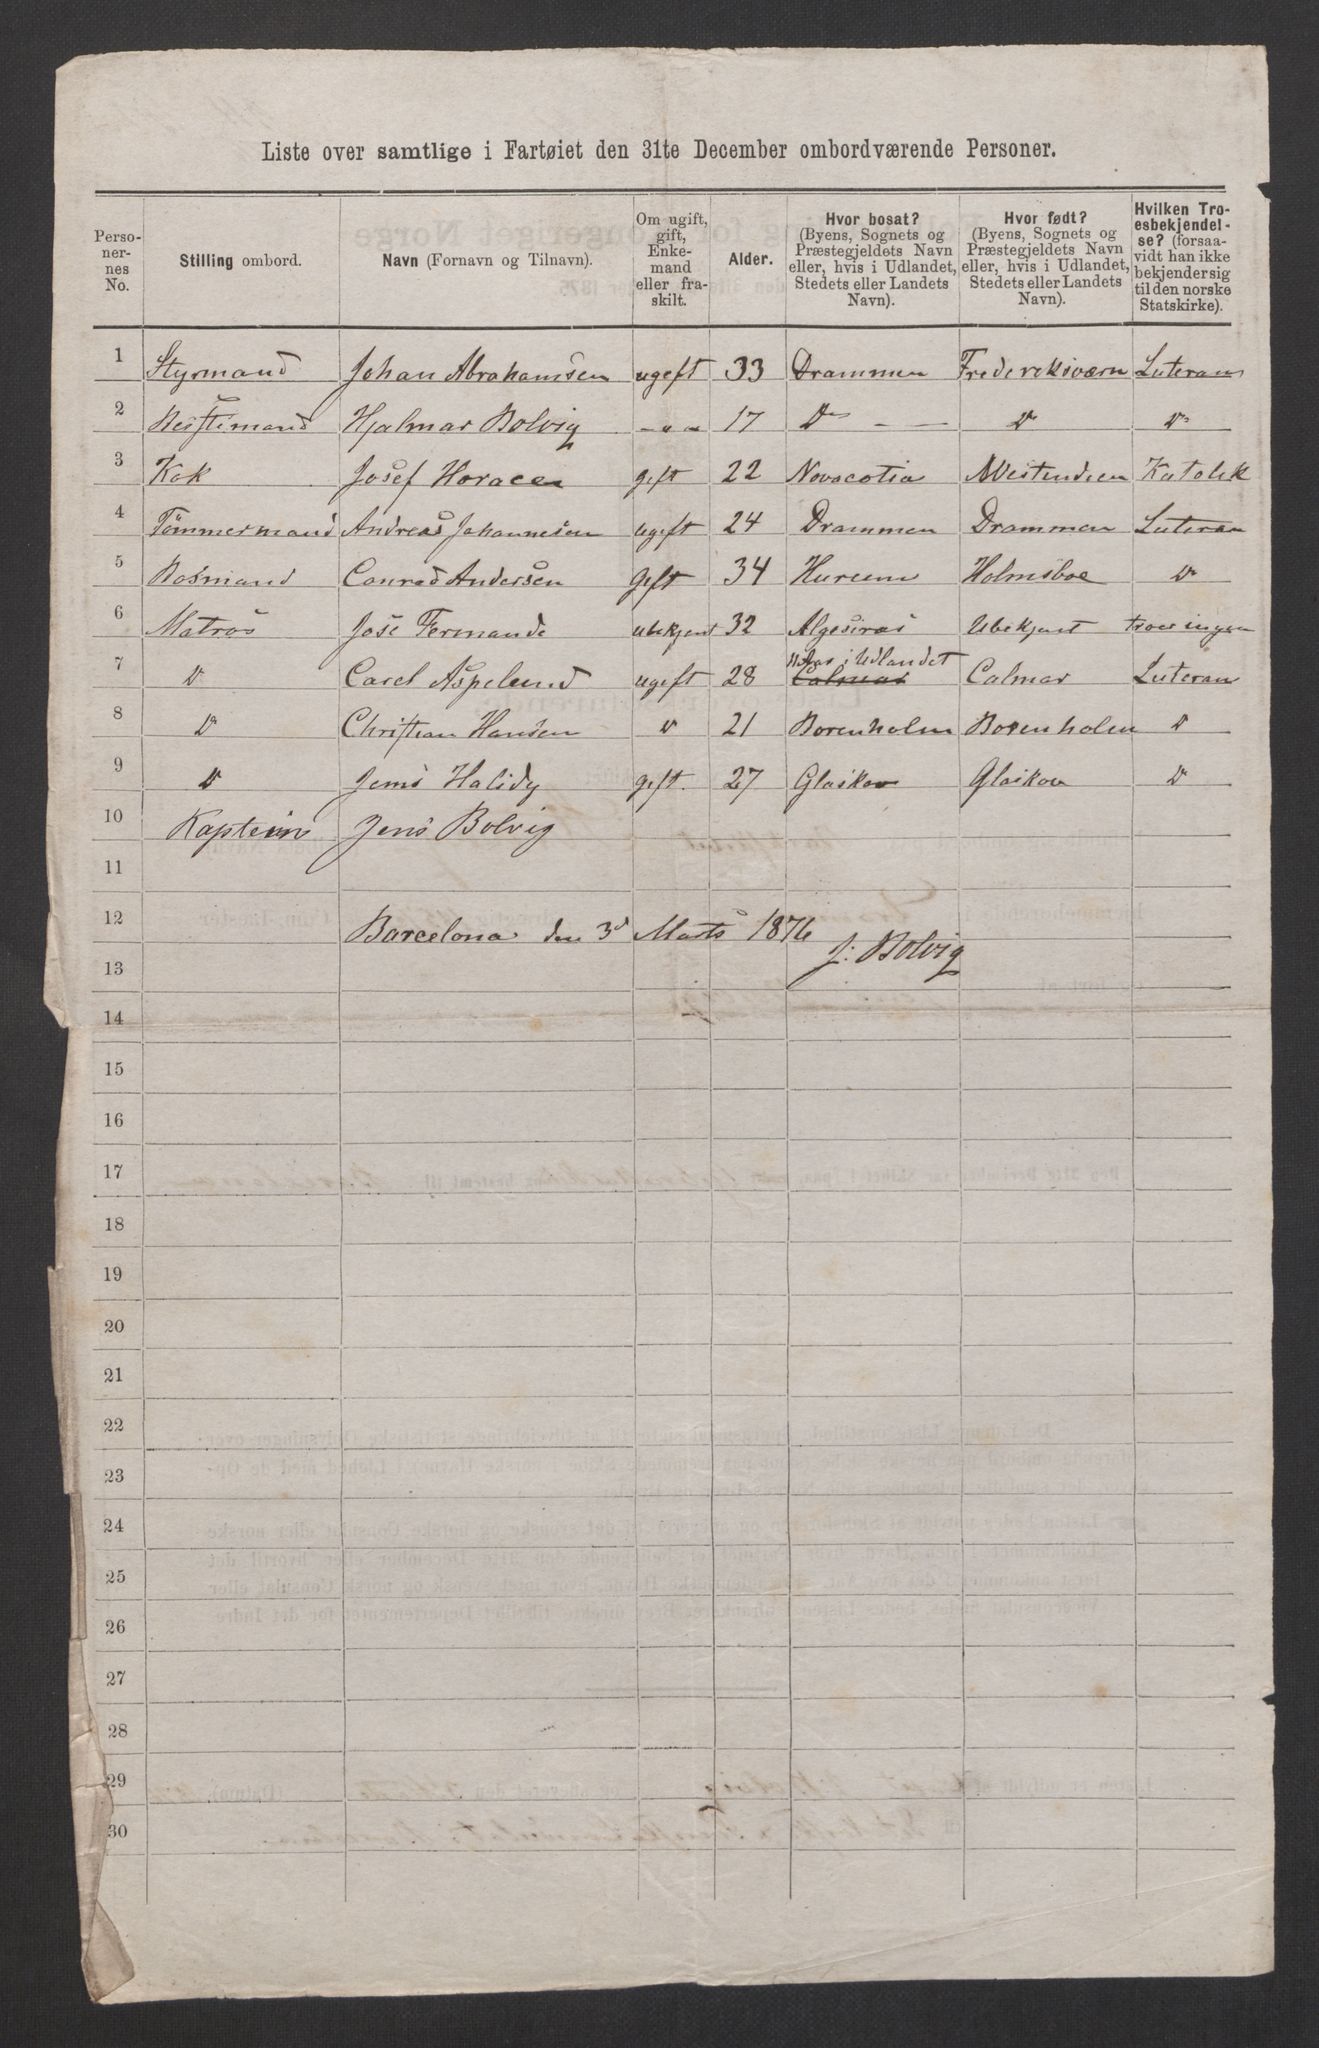 Liste over samtlige i Fartøiet den 31te December ombordværende Personer.
Perso-
ner-
nes
No.
Stilling ombord.
Navn (Fornavn og Tilnavn).
Om ugift,
gift,
Enke-
mand
eller fra-
skilt.
Alder.
Hvor bosat?
(Byens, Sognets og
Præstegjeldets Navn
eller, hvis i Udlandet,
Stedets eller Landets
Navn).
Hvor født?
(Byens, Sognets og
Præstegjeldets Navn
eller, hvis i Udlandet,
Stedets eller Landets
Navn).
Hvilken Tro-
esbekjendel-
se? (forsaa-
vidt han ikke
bekjender sig
til den norske
Statskirke).
1 Styrmand Johan Abrahamsen ugeft 33 Drammen Frederiksværn Luteran
2 Hjalmar Bolvig - „ - 17 Do - - Do Do
3 Kok Josef Horacen geft 22 Novacotia Westendien Katolek
4 Tömmermand Andreas Johannesen ugeft 24 Drammen Drammen Luteran
5 Bosmand Conrad Andersen geft 34 Hurum Holmsboe Do
6 Matros Jose Fermande ubekjent 32 Algesiras Ubekjent troer ingen
7 Do Carel Aspelund ugeft 28 i Udlandet Calmar Calmar Luteran
8 Do Christian Hansen Do 21 Borenholm Borenholm Do
9 Do Jems Halidy geft. 27 Glaskov Glaskov Do
10 Kaptein Jens Bolvig
11
12 Barcelona den 3d Marts 1876
J. Bolvig
13
14
15
16
17
18
19
20
21
22
23
24
25
26
27
28
29
30